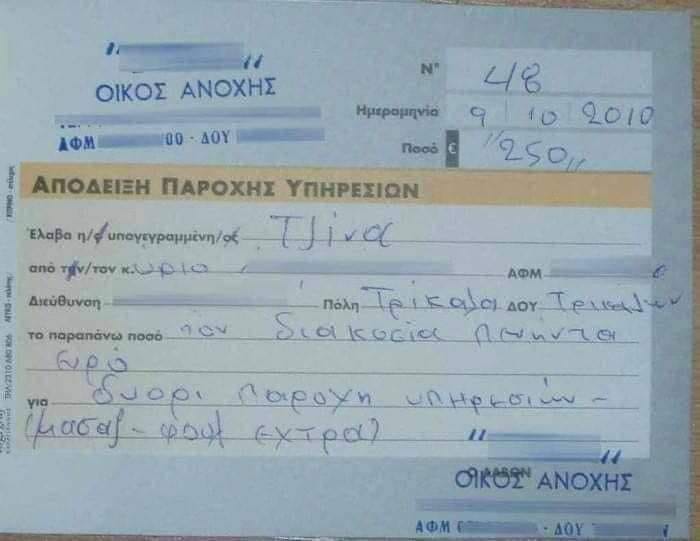 ΟΙΚΟΣ ΑΝΟΧΗΣ
ΑΦΜ 00 - ΔΟΥ
Ν° 48
Ημερομηνία 9 10 2010
Ποσό € "250"
ΑΠΟΔΕΙΞΗ ΠΑΡΟΧΗΣ ΥΠΗΡΕΣΙΩΝ
Έλαβα η/ο υπογεγραμμένη/ος Τζίνα
από την/τον κ. ύριο ΑΦΜ
Διεύθυνση Πόλη Τρίκαλα ΔΟΥ Τρικάλων
το παραπάνω ποσό τον διακοσία πενηντα
ευρό
για δυορι παροχη υπηρεσιών -
(μασαζ - φουλ εχτρα)
Ο ΛΑΒΩΝ
ΟΙΚΟΣ ΑΝΟΧΗΣ
ΑΦΜ - ΔΟΥ